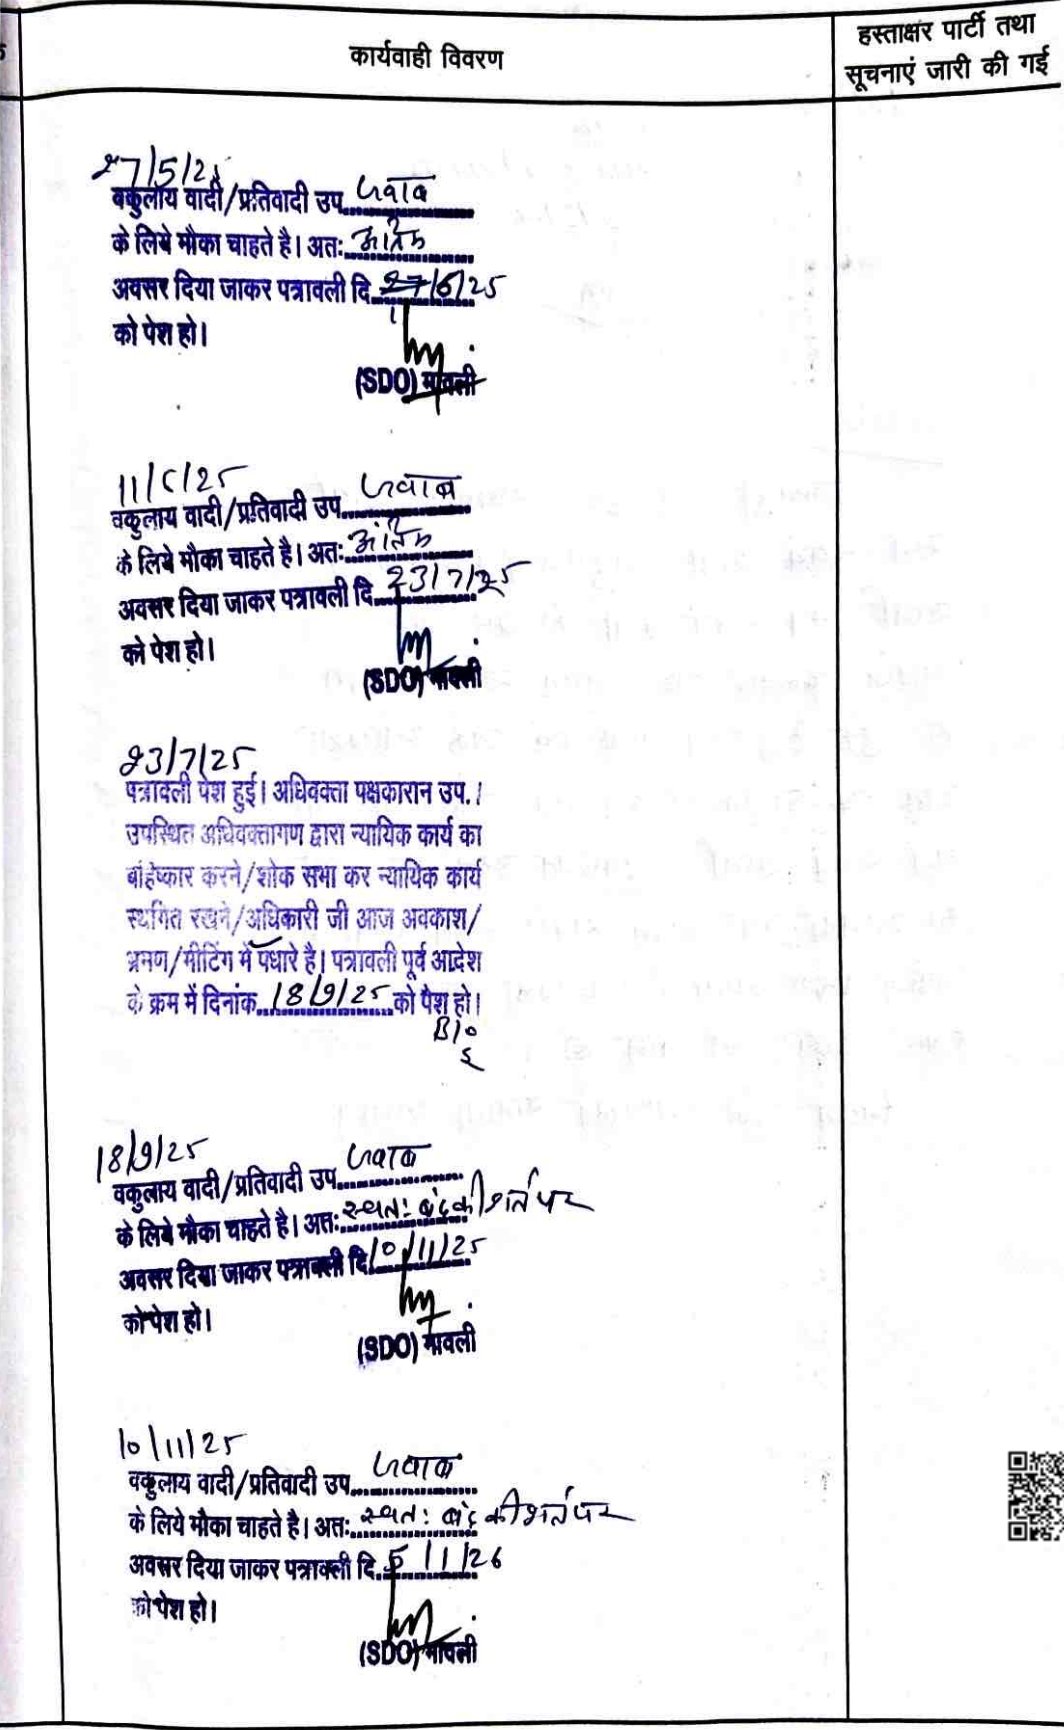 कार्यवाही विवरण
हस्ताक्षर पार्टी तथा
सूचनाएं जारी की गई
27/5/25
वकुलाय वादी/प्रतिवादी उप. जवाब
के लिये मौका चाहते है। अतः अंतिम
अवसर दिया जाकर पत्रावली दि. /25
को पेश हो।
(SDO) मावली
11/ /25
वकुलाय वादी/प्रतिवादी उप. जवाब
के लिये मौका चाहते है। अतः अंतिम
अवसर दिया जाकर पत्रावली दि. 23/7/25
को पेश हो।
(SDO) मावली
23/7/25
पत्रावली पेश हुई। अधिवक्ता पक्षकारान उप.।
उपस्थित अधिवक्तागण द्वारा न्यायिक कार्य का
बहिष्कार करने/शोक सभा कर न्यायिक कार्य
स्थगित रखने/अधिकारी जी आज अवकाश/
भ्रमण/मीटिंग में पधारे है। पत्रावली पूर्व आदेश
के क्रम में दिनांक 18/9/25 को पेश हो।
18/9/25
वकुलाय वादी/प्रतिवादी उप. जवाब
के लिये मौका चाहते है। अतः स्वतः बंद की शर्त पर
अवसर दिया जाकर पत्रावली दि. 10/11/25
को पेश हो।
(SDO) मावली
10/11/25
वकुलाय वादी/प्रतिवादी उप. जवाब
के लिये मौका चाहते है। अतः स्वतः बंद की शर्त पर
अवसर दिया जाकर पत्रावली दि. 5/1/26
को पेश हो।
(SDO) मावली